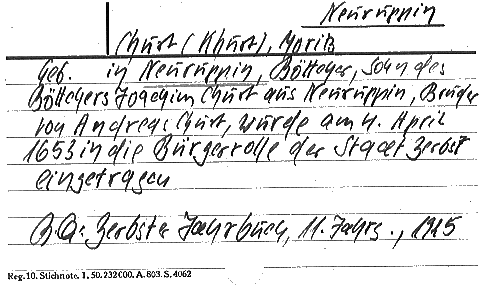 Neuruppin
Churt (Khurt), Moritz
Geb. in Neuruppin, Böttcher, Sohn des
Böttchers Joachim Churt aus Neuruppin, Bruder
von Andreas Churt, wurde am 4. April
1653 in die Bürgerrolle der Stadt Zerbst
eingetragen
B.Q: Zerbster Jahrbuch, 11. Jahrg., 1925
Reg. 10. Stichnote. 1. 50. 232000. A. 803. S. 4062